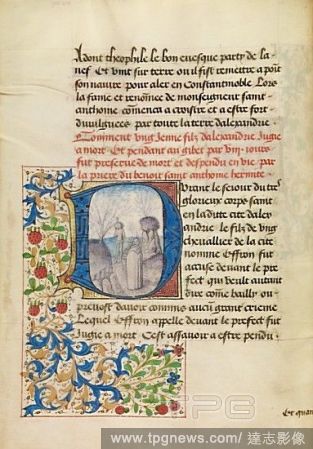 Adont theophile le bon evesque party de la
nef Et vint sur terre ou il fist remettre a point
son navire pour aler en Constantinoble Lors
la fame et renommee de monseigneur saint
anthoine comenca a croistre et a estre fort
divulguees par toute la terre dalexandrie
Comment ung jenne filz dalexandrie jugie
a mort Et pendant au gibet par viii jours
fut preserve de mort et despendu en vie par
la priere du benoit saint anthoine hermite
Durant le seiour du tres
glorieux corps saint
en ladite cite dalex
andrie le filz de ung
chevallier de la cite
nomme Effron fut
accuse devant le pre
fect qui veult autant
dire come bailly ou
prevost davoir commis aucun grant crieme
Lequel Effron appelle devant le prefect fut
Jugie a mort Cest assavoir a estre pendu
Et quant
TPG
www.tpgnews.com/達志影像